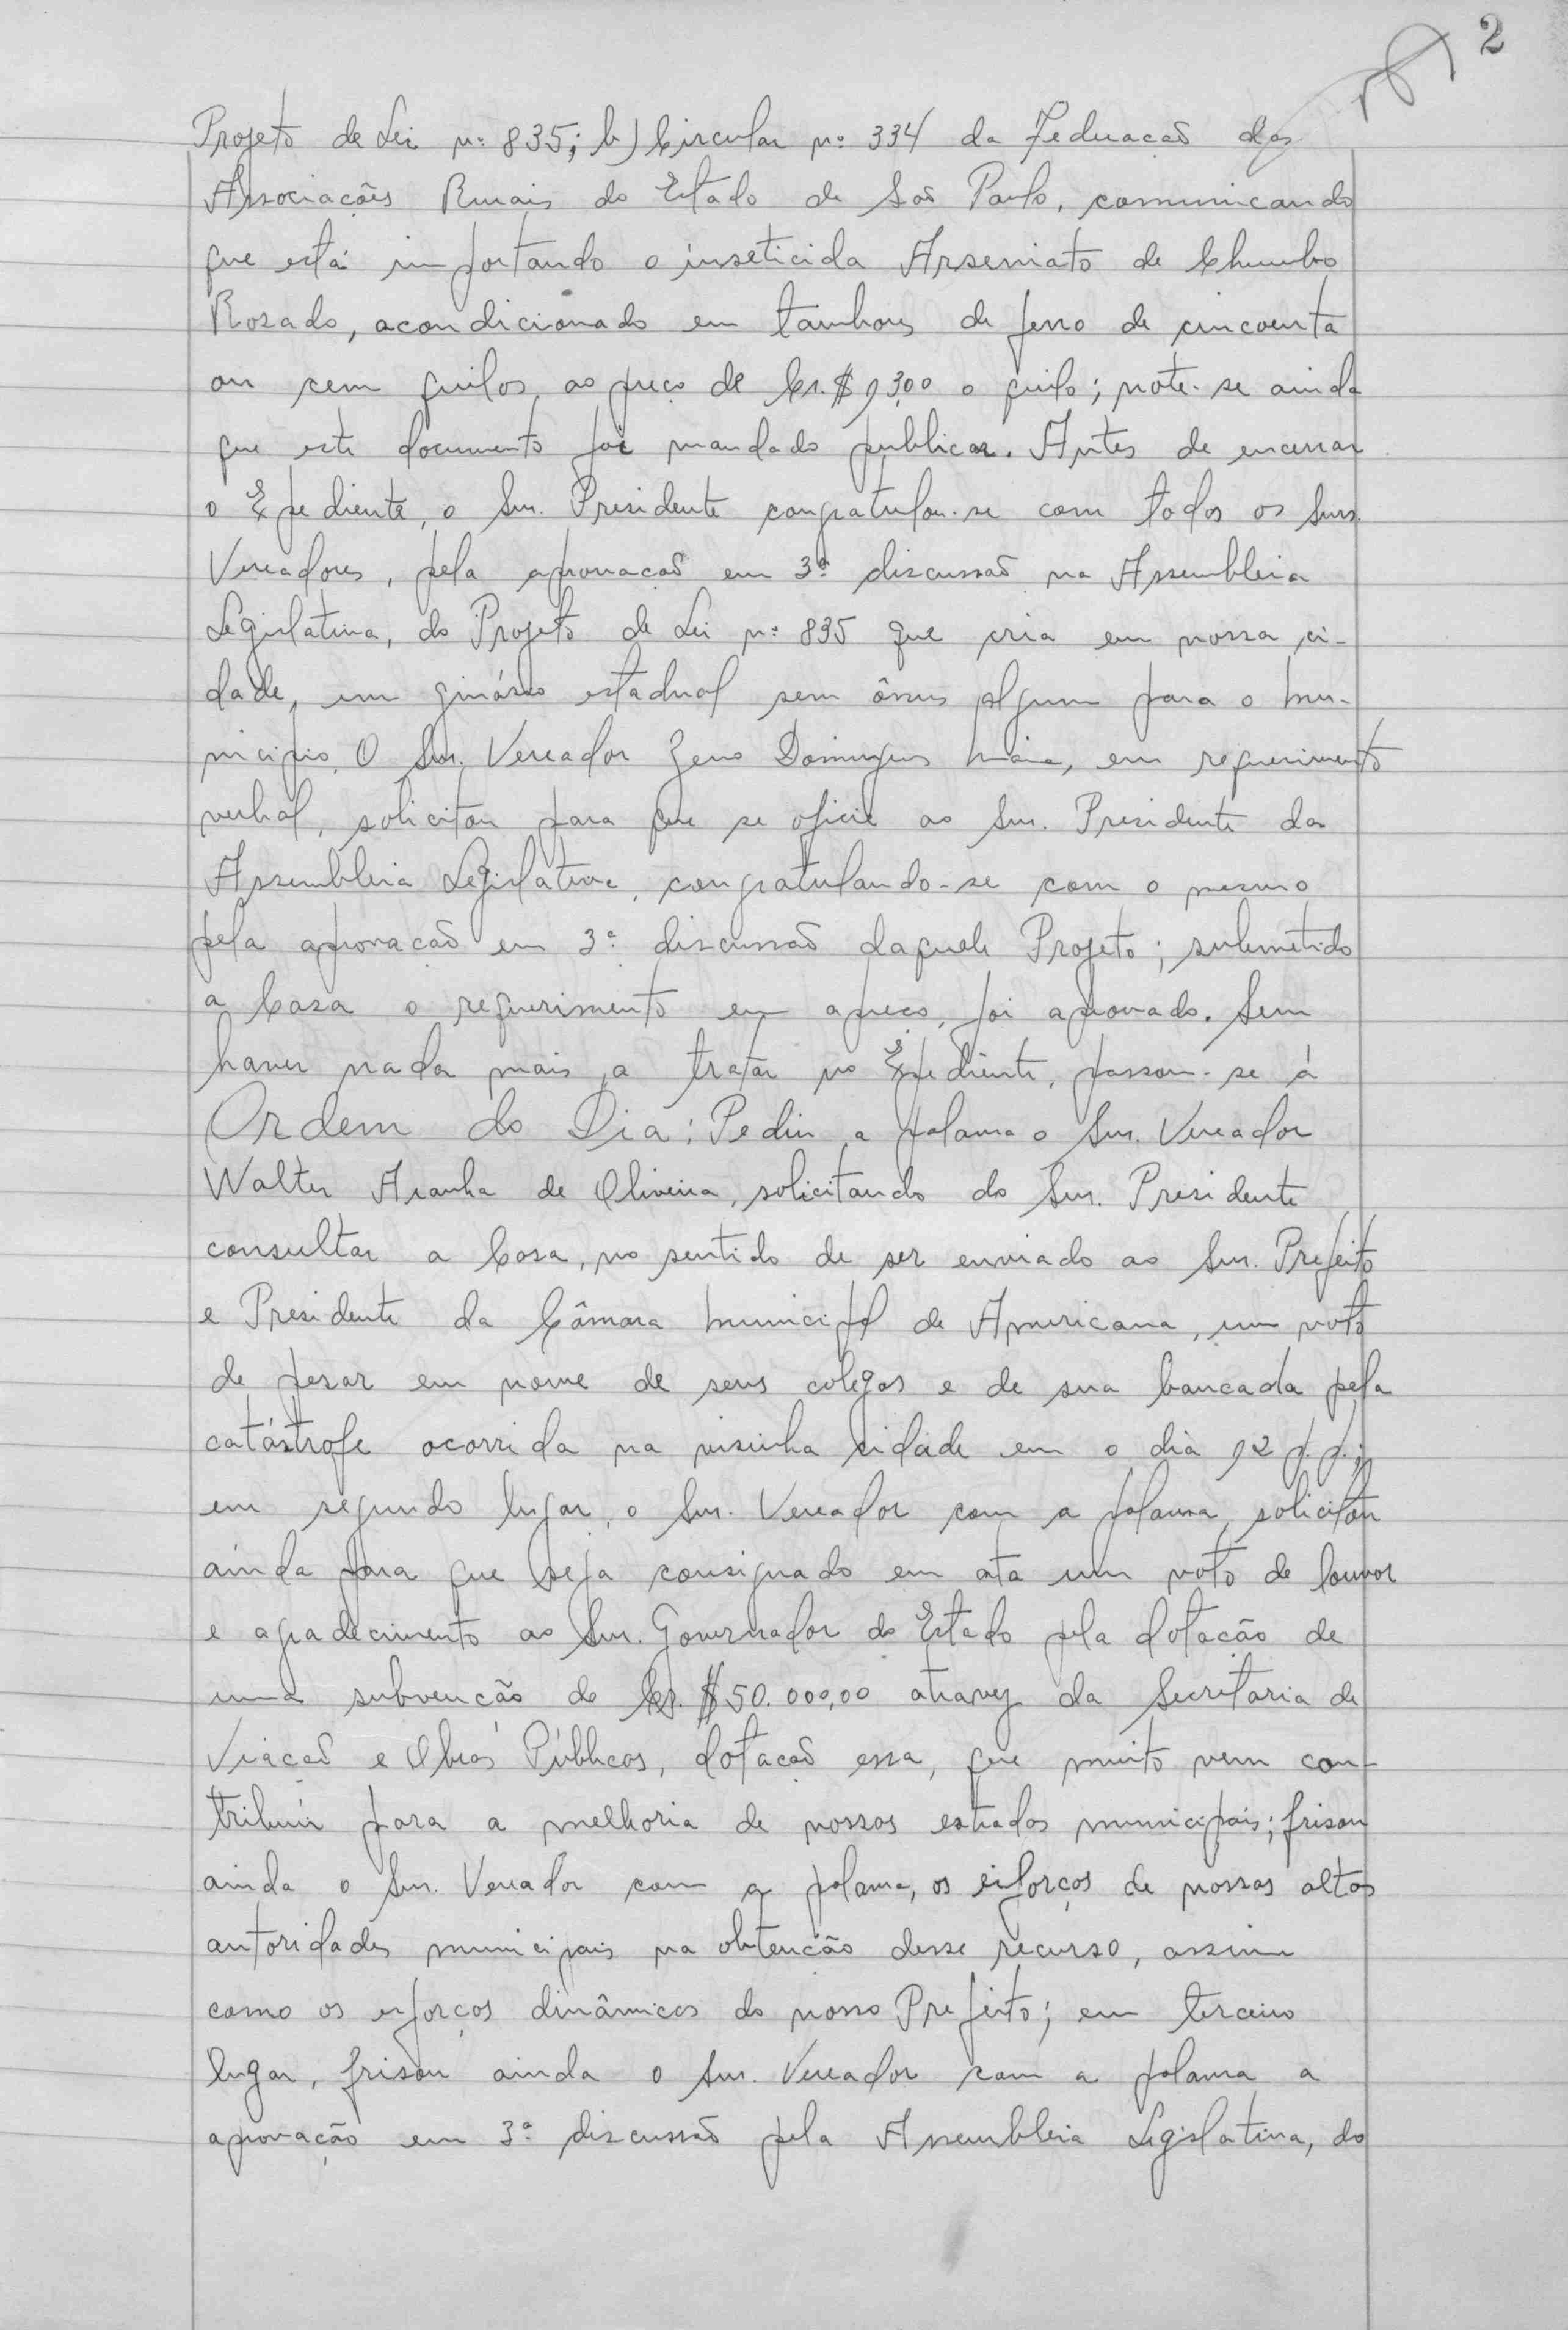 2
Projeto de Lei nº 835; b) Circular nº 334 da Federacaõ das
Associacões Rurais do Estado de Saõ Paulo, comunicando
que está importando o inseticida Arseniato de Chumbo
Rosado, acondicionado em tambores de ferro de cincoenta
ou cem quilos, ao preço de Cr.$ 13,00 o quilo; note-se ainda
que este documento foi mandado publicar. Antes de encerrar
o Expediente, o Snr. Presidente congratulou-se com todos os Snrs.
Vereadores, pela aprovacaõ em 3ª discussaõ na Assembleia
Legislativa, do Projeto de Lei nº 835 que cria em nossa ci-
dade, um ginásio estadual sem ônus algum para o mu-
nicipio. O Snr. Vereador Zeno Domingues Maia, em requerimento
verbal, solicitou para que se oficie ao Snr. Presidente da
Assembleia Legislativa, congratulando-se com o mesmo
pela aprovacaõ em 3ª discussaõ daquele Projeto; submetido
a Casa o requerimento em apreço, foi aprovado. Sem
haver nada mais a tratar no Expediente, passou-se á
Ordem do Dia: Pediu a palavra o Snr. Vereador
Walter Aranha de Oliveira, solicitando do Snr. Presidente
consultar a Casa, no sentido de ser enviado ao Snr. Prefeito
e Presidente da Câmara Municipal de Americana, um voto
de pesar em nome de seus colegas e de sua bancada pela
catástrofe ocorrida na visinha cidade em o dia 12 p.p.;
em segundo lugar, o Snr. Vereador com a palavra, solicitou
ainda para que seja consignado em ata um voto de louvor
e agradecimento ao Snr. Governador do Estado pela dotação de
uma subvenção de Cr. $ 50.000,00 atravez da Secretaria de
Viacaõ e Obras Públicas, dotacaõ essa, que muito vem con-
tribuir para a melhoria de nossas estradas municipais; frisou
ainda o Snr. Vereador com a palavra, os esforços de nossas altas
autoridades municipais na obtenção desse recurso, assim
como os esforços dinâmicos do nosso Prefeito; em terceiro
lugar, frisou ainda o Snr. Vereador com a palavra a
aprovação em 3ª discussaõ pela Assembleia Legislativa, do